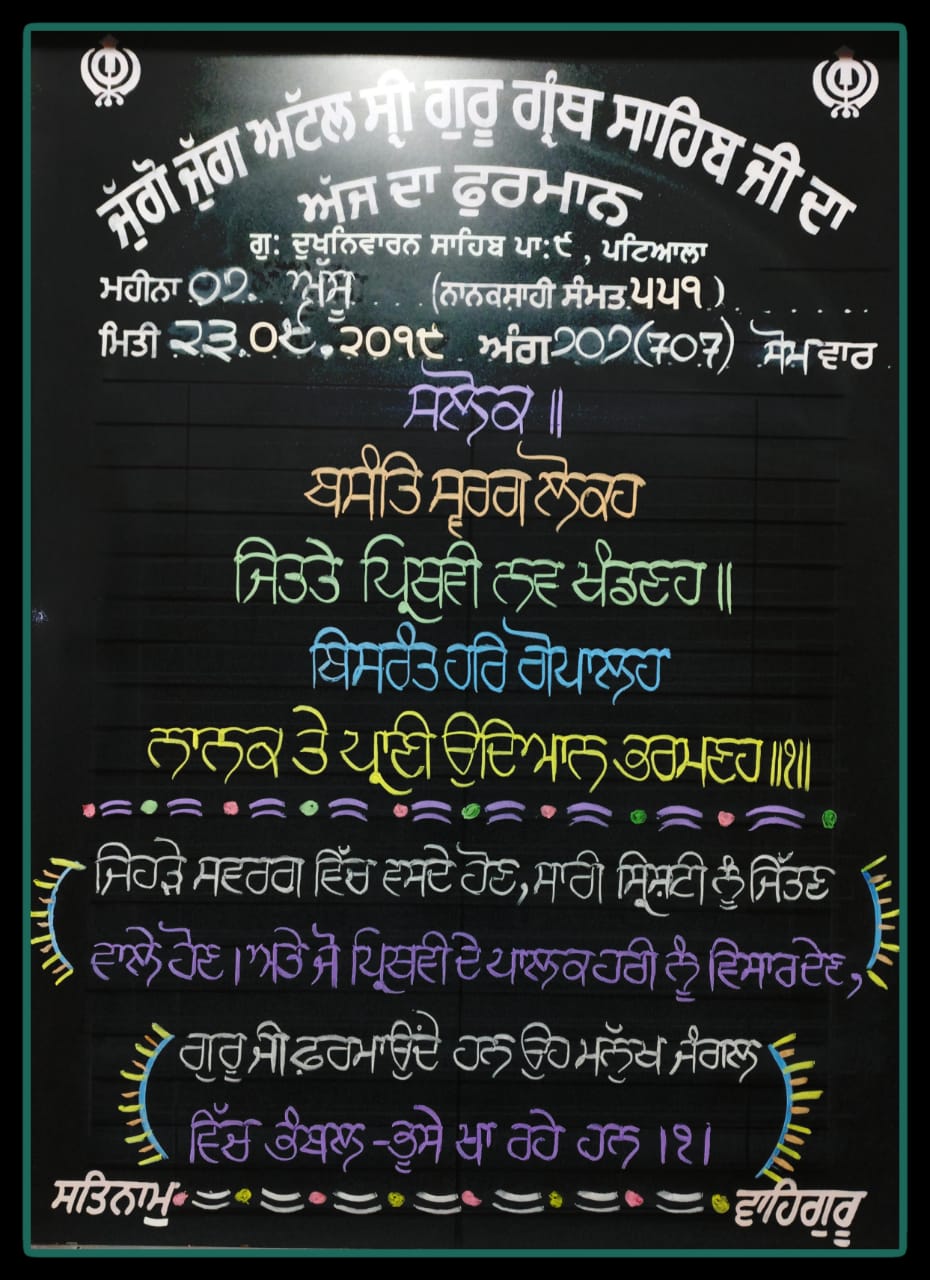 ਜੁੱਗੋ ਜੁੱਗ ਅਟੱਲ ਸ੍ਰੀ ਗੁਰੂ ਗ੍ਰੰਥ ਸਾਹਿਬ ਜੀ ਦਾ
ਅੱਜ ਦਾ ਫੁਰਮਾਨ
ਗੁ: ਦੁਖਨਿਵਾਰਨ ਸਾਹਿਬ ਪਾ:੯ , ਪਟਿਆਲਾ
ਮਹੀਨਾ ੦੭. ਅੱਸੂ (ਨਾਨਕਸ਼ਾਹੀ ਸੰਮਤ ੫੫੧)
ਮਿਤੀ ੨੩.੦੯.੨੦੧੯ ਅੰਗ ੭੦੭(707) ਸੋਮਵਾਰ
ਸਲੋਕ ॥
ਬਸੰਤਿ ਸ੍ਵਰਗ ਲੋਕਹ
ਜਿਤਤੇ ਪ੍ਰਿਥਵੀ ਨਵ ਖੰਡਣਹ ॥
ਬਿਸਰੰਤ ਹਰਿ ਗੋਪਾਲਹ
ਨਾਨਕ ਤੇ ਪ੍ਰਾਣੀ ਉਦਿਆਨ ਭਰਮਣਹ ॥੧॥
ਜਿਹੜੇ ਸਵਰਗ ਵਿੱਚ ਵਸਦੇ ਹੋਣ, ਸਾਰੀ ਸ੍ਰਿਸ਼ਟੀ ਨੂੰ ਜਿੱਤਣ
ਵਾਲੇ ਹੋਣ । ਅਤੇ ਜੋ ਪ੍ਰਿਥਵੀ ਦੇ ਪਾਲਕ ਹਰੀ ਨੂੰ ਵਿਸਾਰ ਦੇਣ,
ਗੁਰੂ ਜੀ ਫ਼ਰਮਾਉਂਦੇ ਹਨ ਉਹ ਮਨੁੱਖ ਜੰਗਲ
ਵਿੱਚ ਭੰਬਲ-ਭੂਸੇ ਖਾ ਰਹੇ ਹਨ ।੧।
ਸਤਿਨਾਮੁ ਵਾਹਿਗੁਰੂ